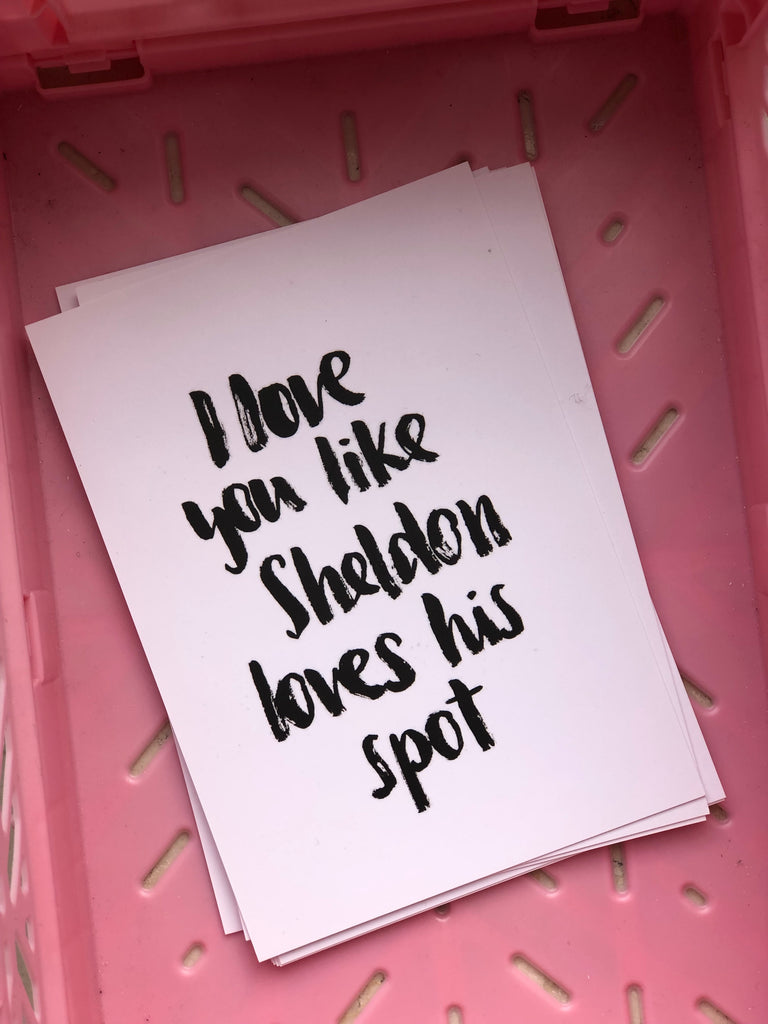 I love
you like
Sheldon
loves his
spot